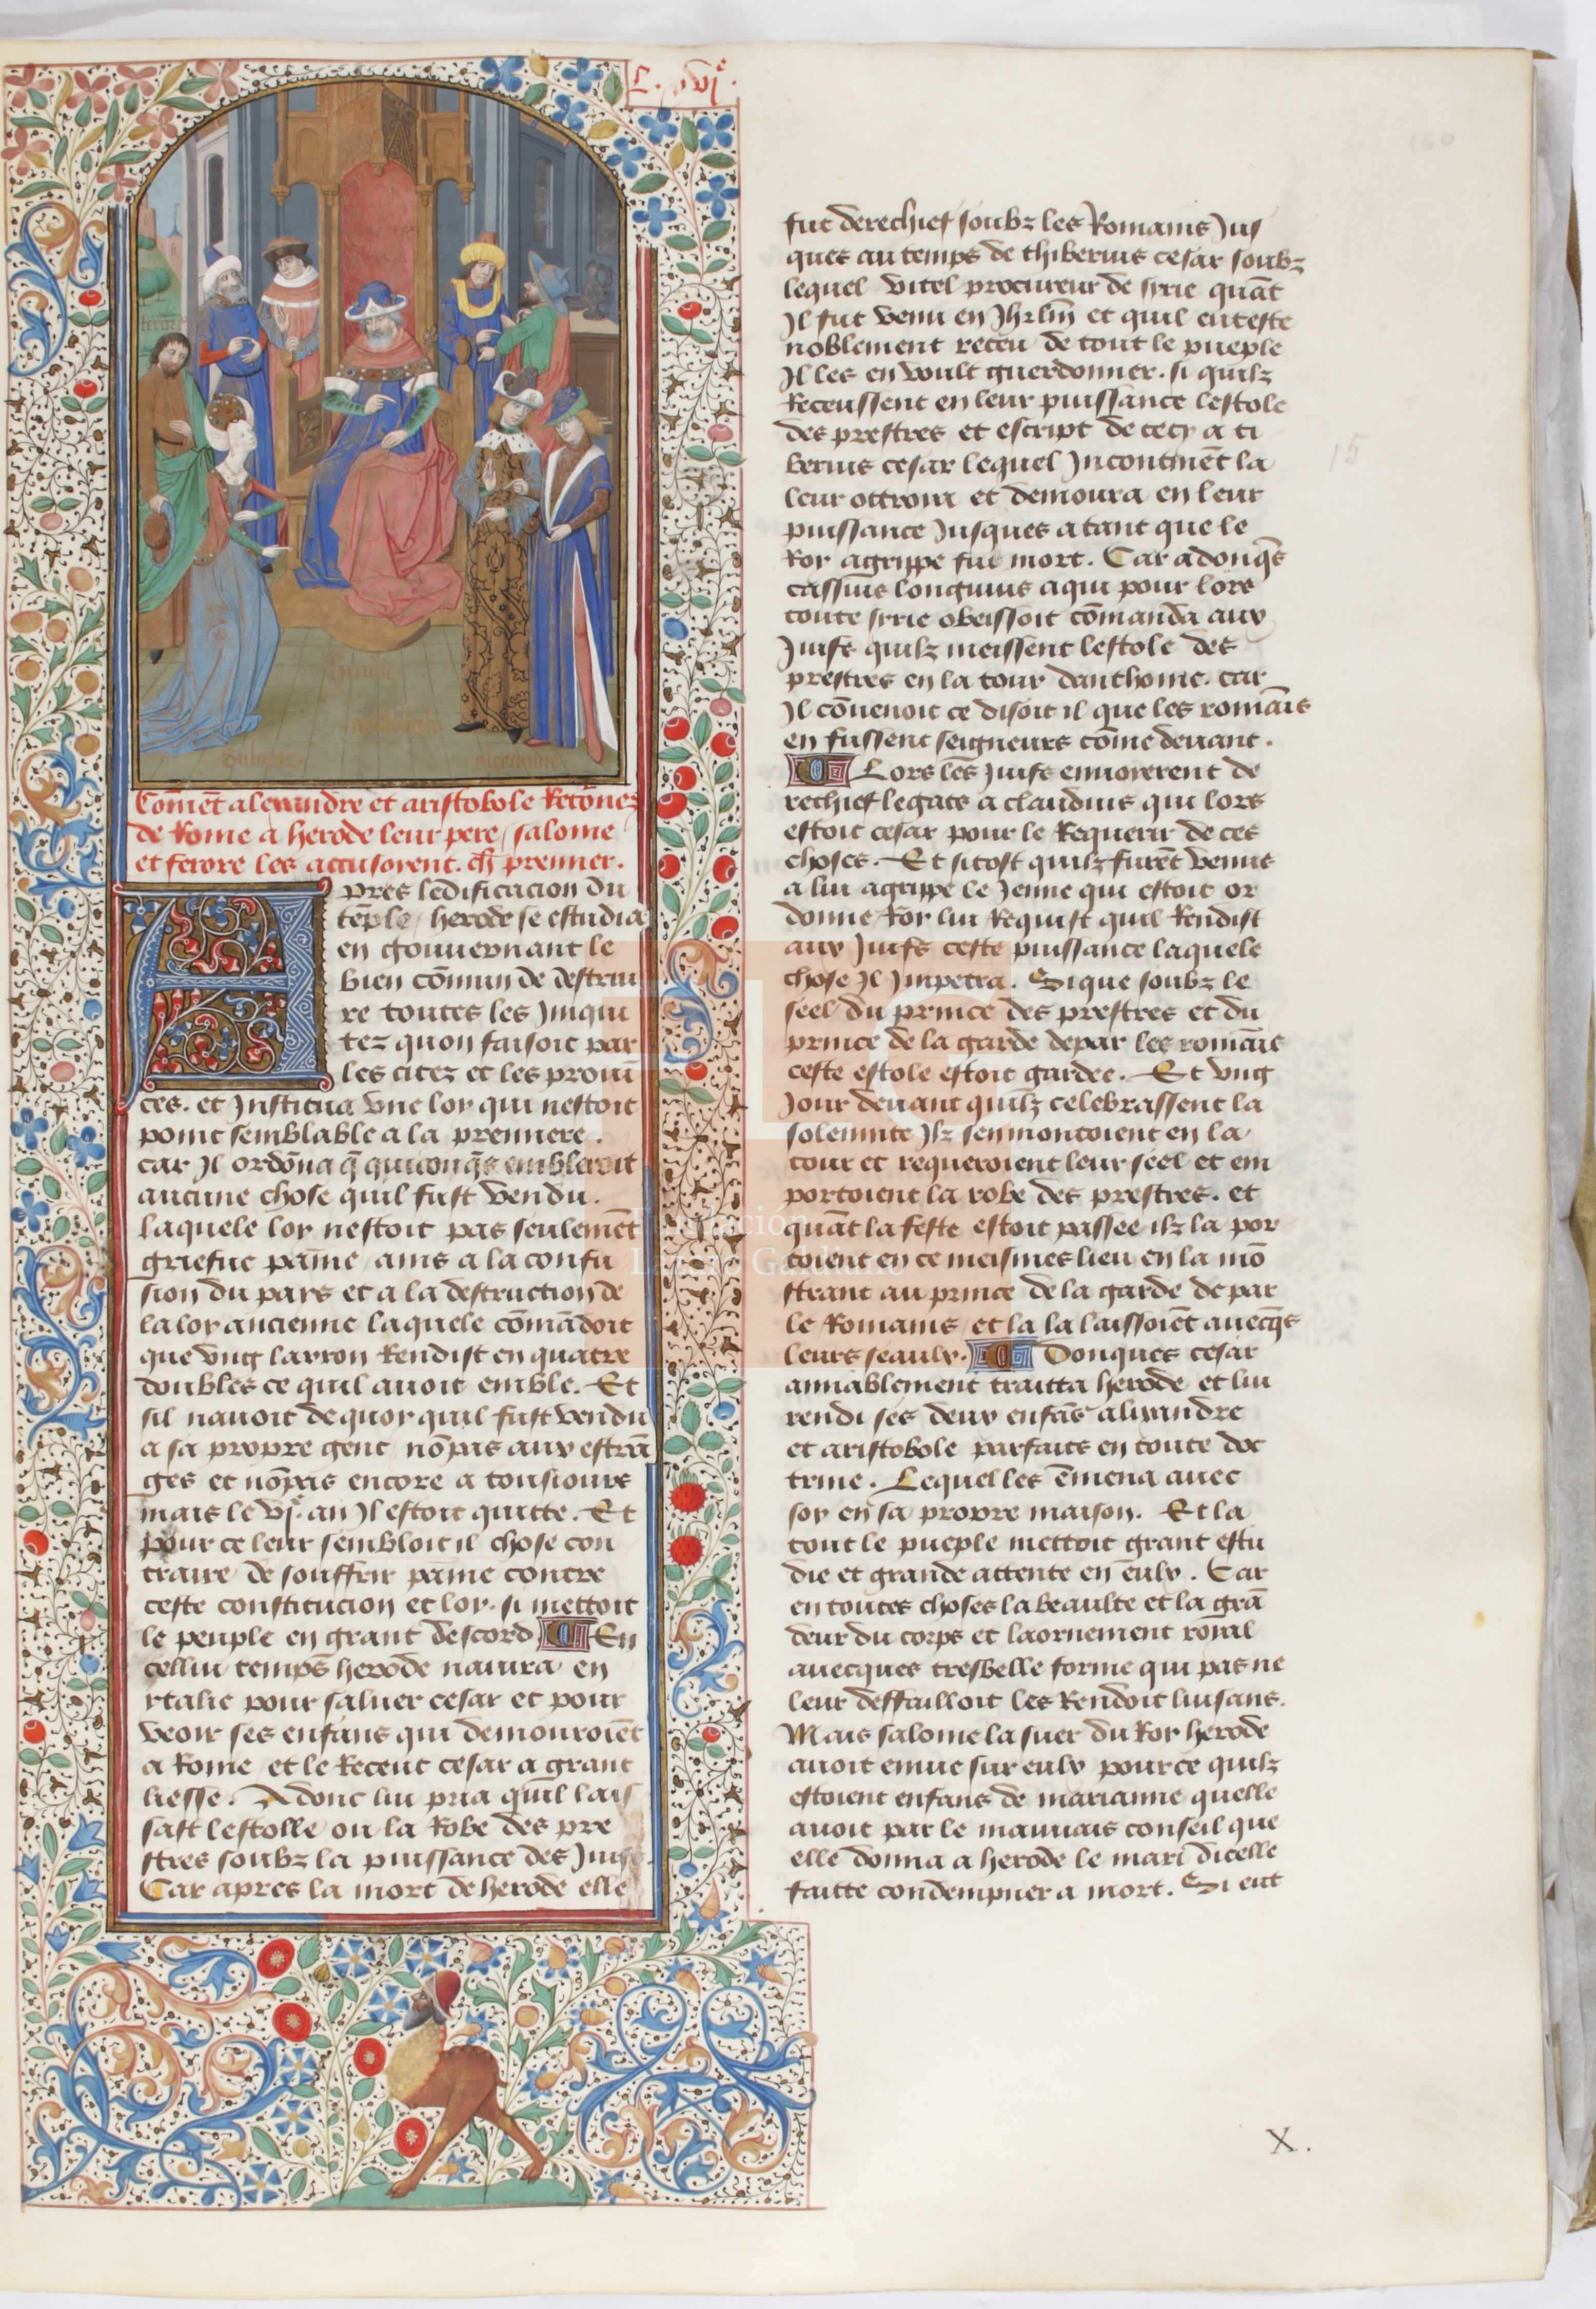 L. xvi^e.
160
ferore
herode
aristobole
Salome.
alexandre.
Com̄et alexandre et aristobole Retōnez
de Rome a herode leur pere, salome
et ferore les accusoyent. ch̄ premier.
Apres ledificacion du
tēple, herode se estudia
en gouuernant le
bien cōmun de destrui
re toutes les Iniqui
tez quon faisoit par
les citez et les prouī
ces. et Institua vne loy qui nestoit
point semblable a la premiere.
car Il ordōna q̄ quiconq̄s embleroit
aucune chose quil fust vendu.
laquele loy nestoit pas seulemēt
griefue paīne, ains a la confu
sion du pays et a la destruction de
la loy ancienne laquele cōmādoit
que vng larron Rendist en quatre
doubles ce quil auoit emble. Et
sil nauoit de quoy quil fust vendu
a sa propre gent nōpas aux estrā
ges et nōpas encore a tousiours
mais le vj^e. an Il estoit quitte. Et
pour ce leur sembloit il chose con
traire de souffrir paīne contre
ceste constitucion et loy. si mettoit
le peuple en grant descord. En
cellui temps herode nauira en
ytalie pour saluer cesar et pour
veoir ses enfans qui demouroiēt
a Rome, et le Receut cesar a grant
liesse. Adonc lui pria quil lais
sast lestolle ou la Robe des pre
stres soubz la puissance des Juifs.
Car apres la mort de herode elle
fut derechief soubz les Romains Jus
ques au temps de thiberius cesar soubz
lequel vitel procureur de syrie quāt
Il fut venu en Jhrl̄m et quil eut este
noblement receu de tout le pueple
Il les en voult guerdonner. si quilz
Receussent en leur puissance lestole
des prestres et escript de cecy a ti
berius cesar lequel Incontinēt la
leur ottroia et demoura en leur
puissance Jusques a tant que le
Roy agrippe fut mort. Car adonq̄s
cassius longuius a qui pour lors
toute syrie obeissoit cōmanda aux
Juifs quilz meissent lestole des
prestres en la tour danthoine. car
Il cōuenoit ce disoit il que les romaīs
en fussent seigneurs cōme deuant.
Lors les Juifs enuoyerent de
rechief legats a claudius qui lors
estoit cesar pour le Requerir de ces
choses. Et si tost quilz furēt venus
a lui agrippe le Jenne qui estoit or
donne Roy lui Requist quil Rendist
aux Juifs ceste puissance laquele
chose Il Impetra. Si que soubz le
seel du prince des prestres et du
prince de la garde depar les romaīs
ceste estole estoit gardee. Et vng
Jour deuant quilz celebrassent la
solemnite Ilz sen montoient en la
tour et requeroient leur seel et em
portoient la robe des prestres. et
quāt la feste estoit passee ilz la por
toient en ce meismes lieu en la mō
strant au prince de la garde de par
le Romains, et la la laissoiēt auecq̄s
leurs seaulx. Donques cesar
amiablement traitta herode et lui
rendi ses deux enfās alixandre
et aristobole parfaits en toute doc
trine. Lequel les ēmena auec
soy en sa propre maison. Et la
tout le pueple mettoit grant estu
die et grande attente en eulx. Car
en toutes choses la beaulte et la grā
deur du corps et laornement royal
auecques tresbelle forme qui pas ne
leur deffailloit les Rendoit luisans.
Mais salome la suer du Roy herode
auoit enuie sur eulx pour ce quilz
estoient enfans de marianne quelle
auoit par le mauuais conseil que
elle donna a herode le mari dicelle
faitte condempner a mort. Si eut
15
X.
Fundación
Lázaro Galdiano